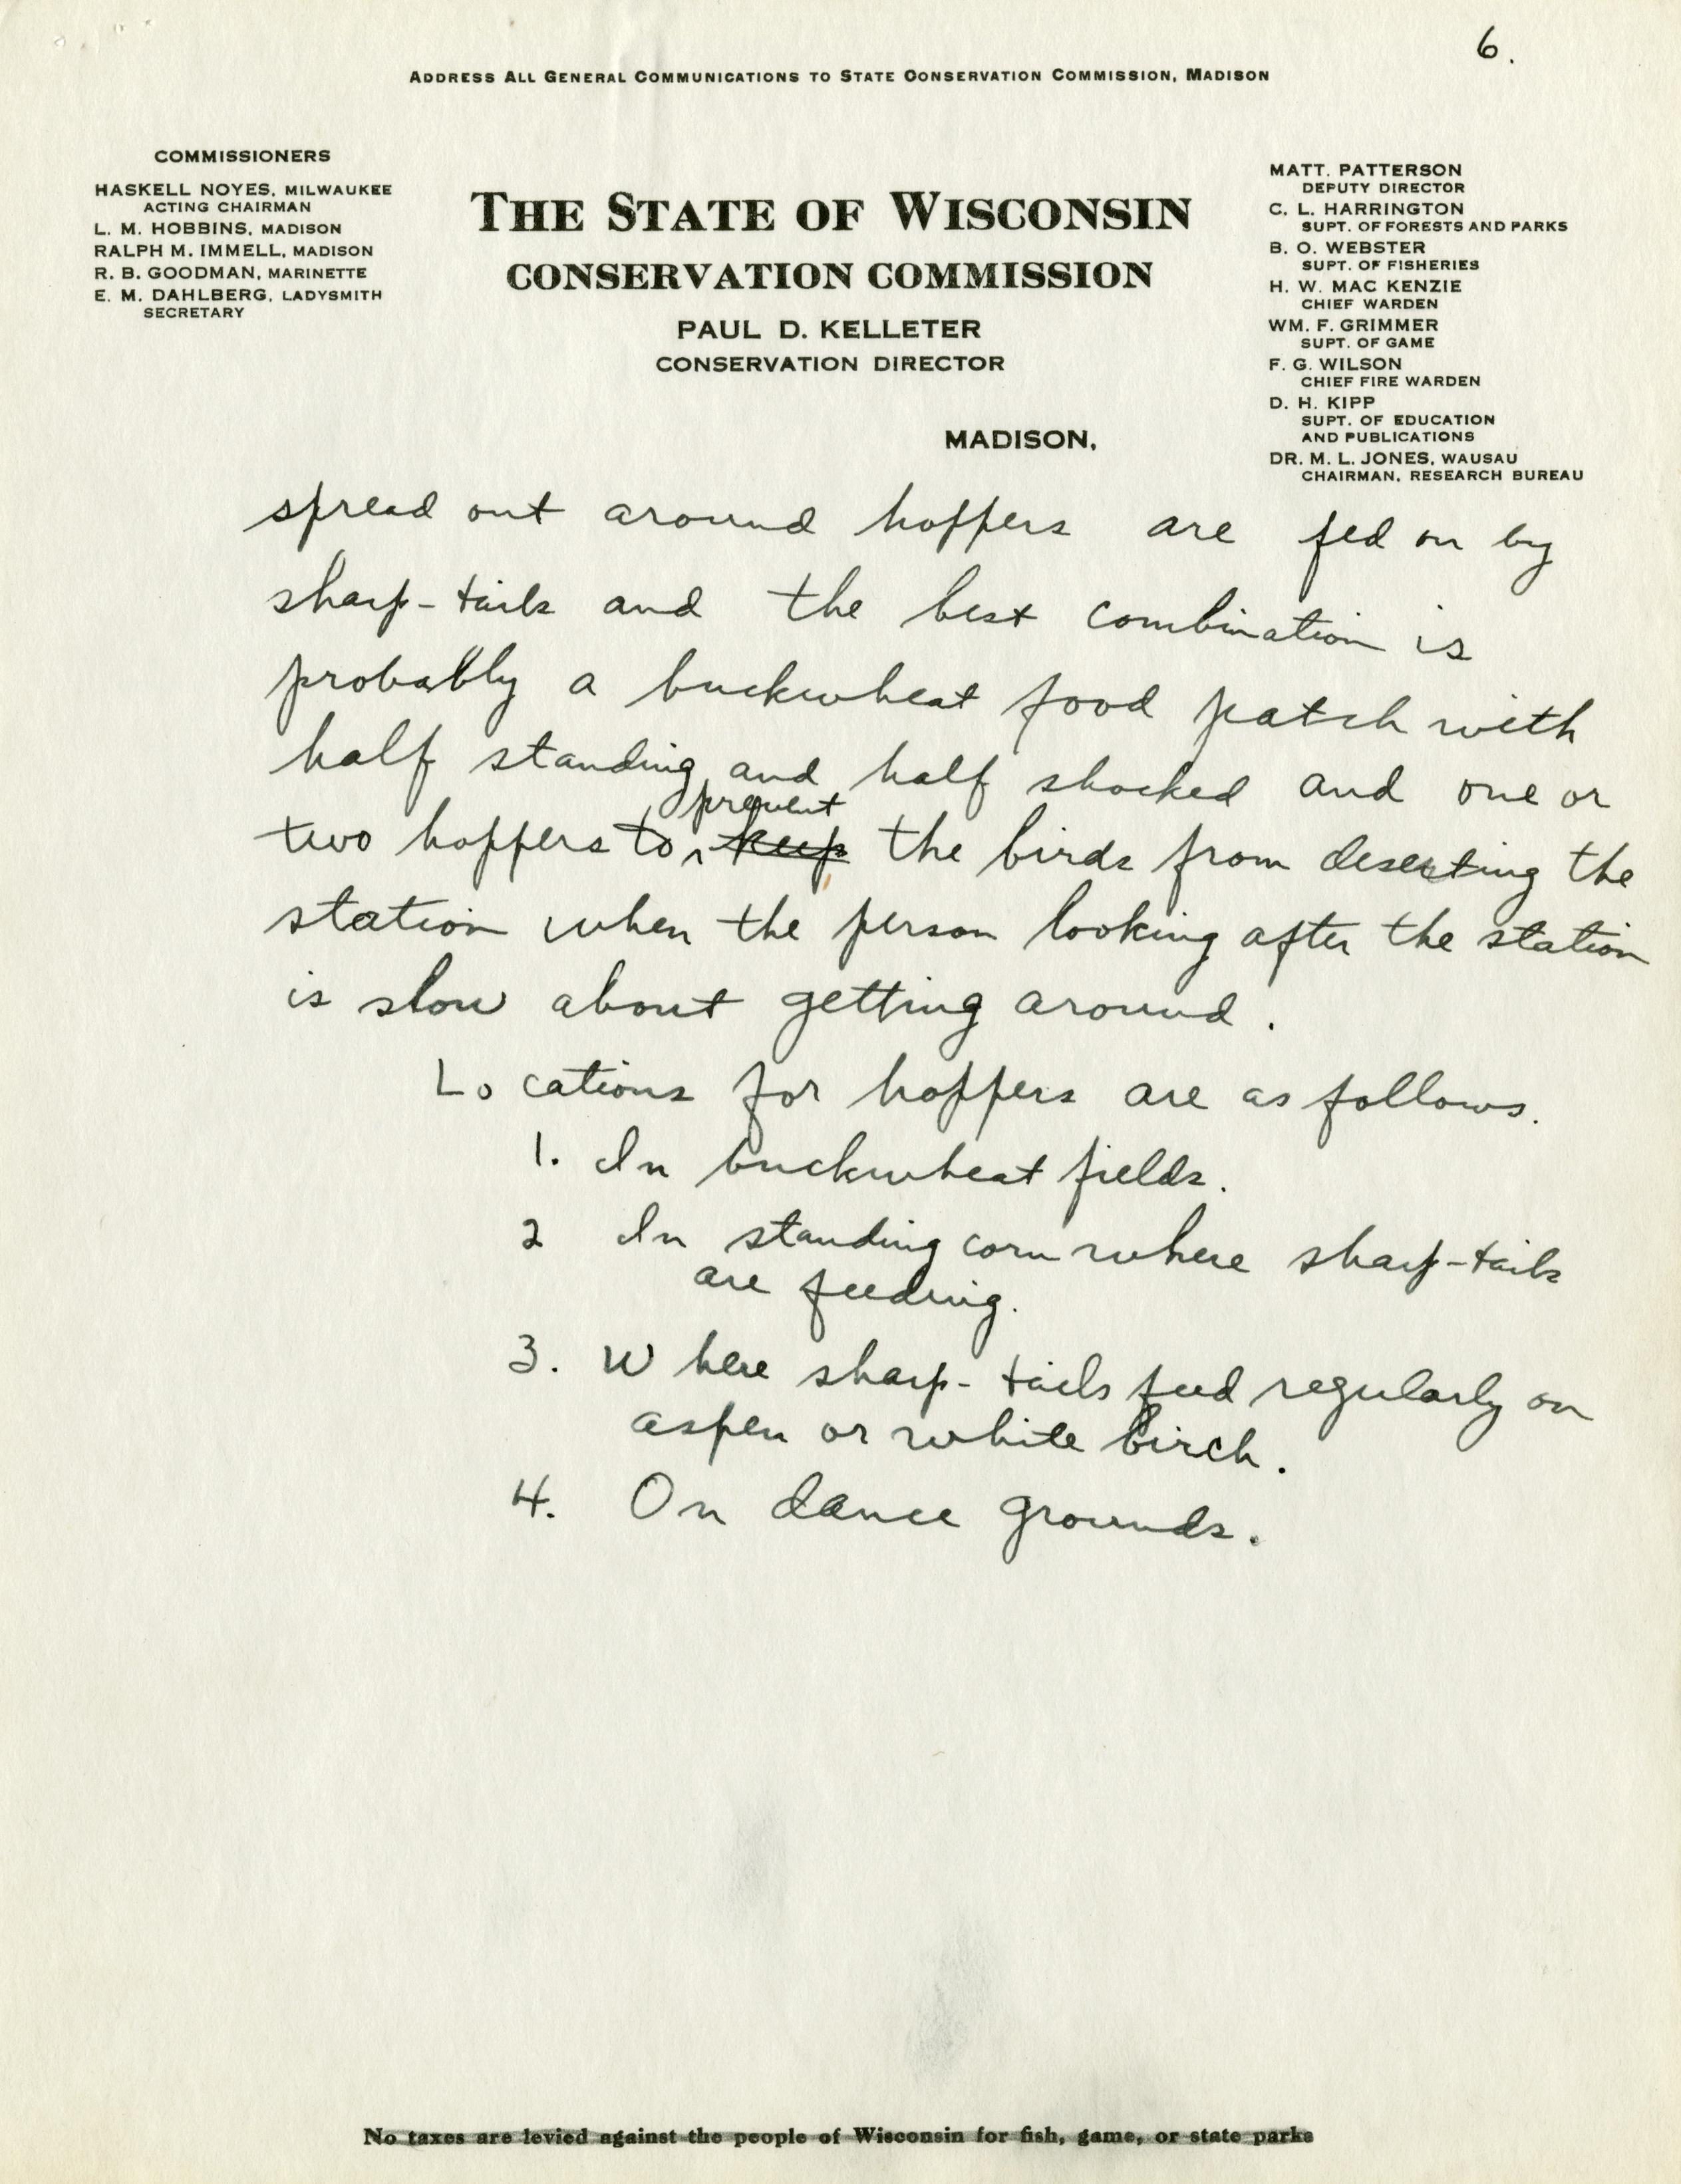 6.
ADDRESS ALL GENERAL COMMUNICATIONS TO STATE CONSERVATION COMMISSION, MADISON
COMMISSIONERS
HASKELL NOYES, MILWAUKEE
ACTING CHAIRMAN
L. M. HOBBINS, MADISON
RALPH M. IMMELL, MADISON
R. B. GOODMAN, MARINETTE
E. M. DAHLBERG, LADYSMITH
SECRETARY
THE STATE OF WISCONSIN
CONSERVATION COMMISSION
PAUL D. KELLETER
CONSERVATION DIRECTOR
MADISON,
MATT. PATTERSON
DEPUTY DIRECTOR
C. L. HARRINGTON
SUPT. OF FORESTS AND PARKS
B. O. WEBSTER
SUPT. OF FISHERIES
H. W. MAC KENZIE
CHIEF WARDEN
WM. F. GRIMMER
SUPT. OF GAME
F. G. WILSON
CHIEF FIRE WARDEN
D. H. KIPP
SUPT. OF EDUCATION
AND PUBLICATIONS
DR. M. L. JONES, WAUSAU
CHAIRMAN, RESEARCH BUREAU
spread out around hoppers are fed on by
sharp-tails and the best combination is
probably a buckwheat food patch with
half standing and half shocked and one or
prevent
two hoppers to keep the birds from deserting the
station when the person looking after the station
is slow about getting around.
Locations for hoppers are as follows.
1. In buckwheat fields.
2 In standing corn where sharp-tails
are feeding.
3. Where sharp-tails feed regularly on
aspen or white birch.
4. On dance grounds.
No taxes are levied against the people of Wisconsin for fish, game, or state parks